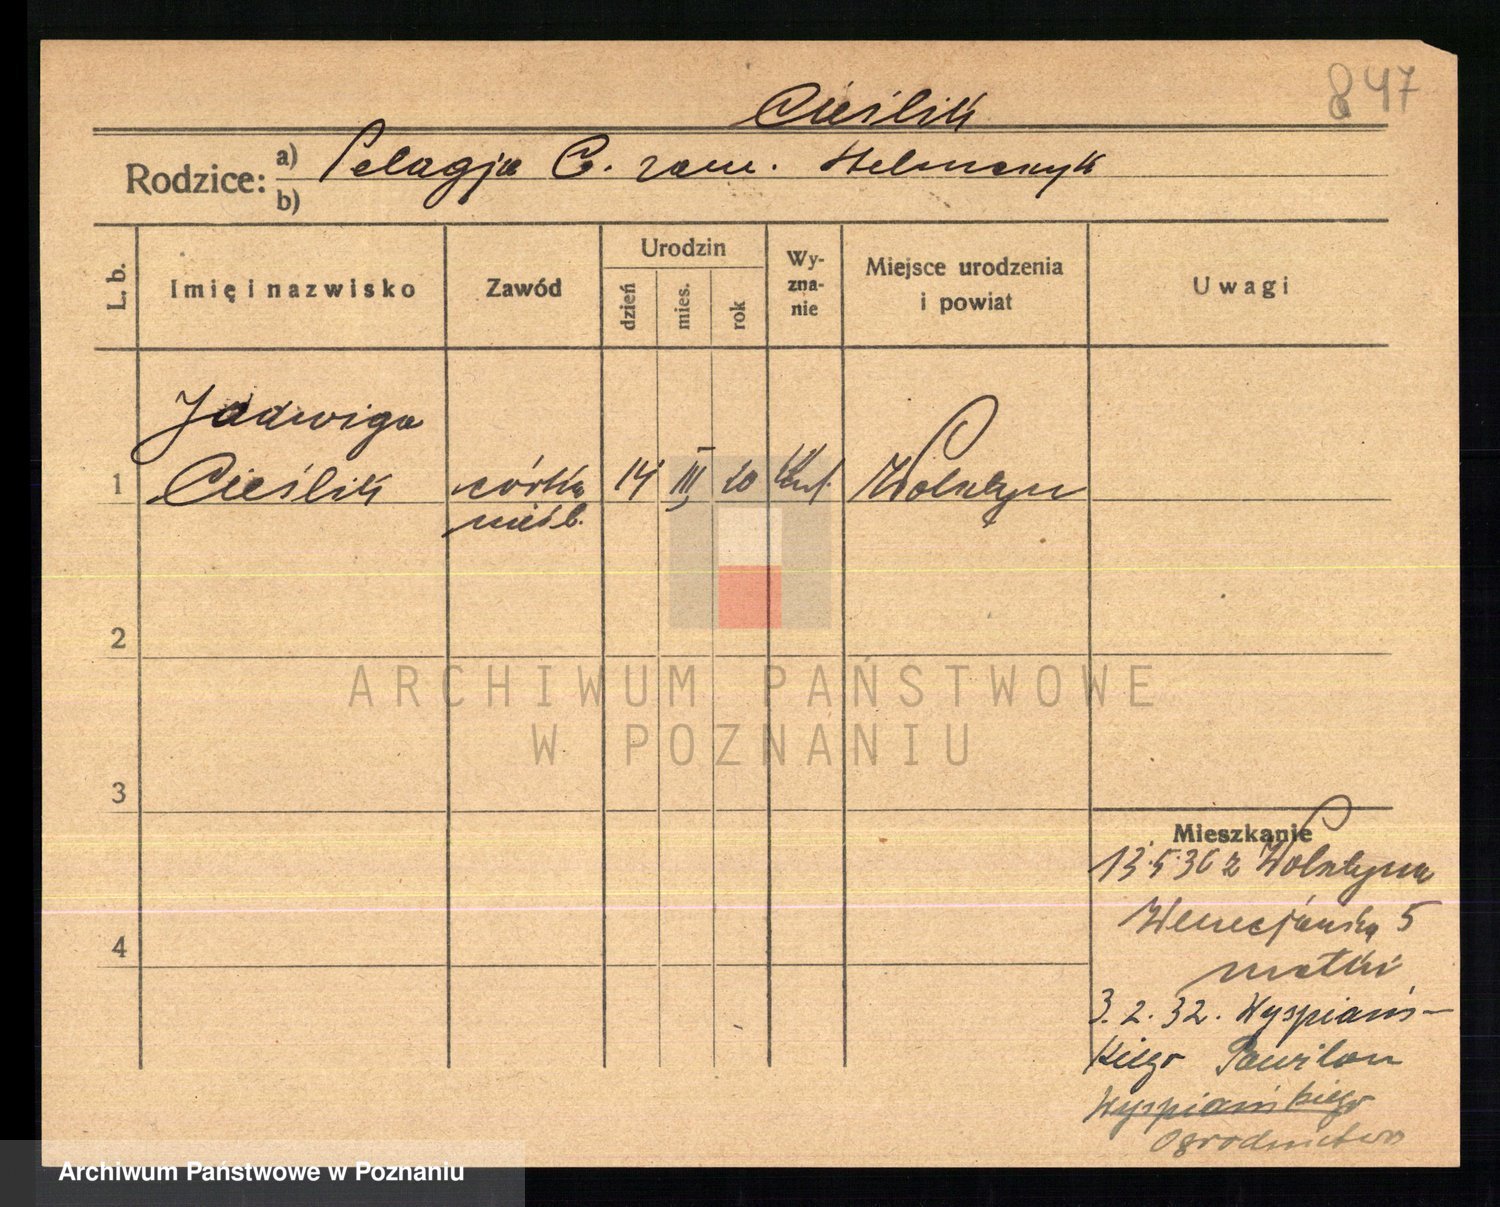 847
Cieślik
Rodzice: a) Pelagja C. zam. Helmczyk
b)
L. b.
Imię i nazwisko
Zawód
Urodzin
dzień
mies.
rok
Wy-
zna-
nie
Miejsce urodzenia
i powiat
Uwagi
Jadwiga
1 Cieślik córka 14 III 20 kat. Wolsztyn
nieśl.
2
3
4
Mieszkanie
13.5.30 z Wolsztyna
Wenecjańska 5
matki
3.2.32. Wyspiańs-
kiego Pawilon
Wyspiańskiego
Ogrodnictwo
ARCHIWUM PAŃSTWOWE
W POZNANIU
Archiwum Państwowe w Poznaniu